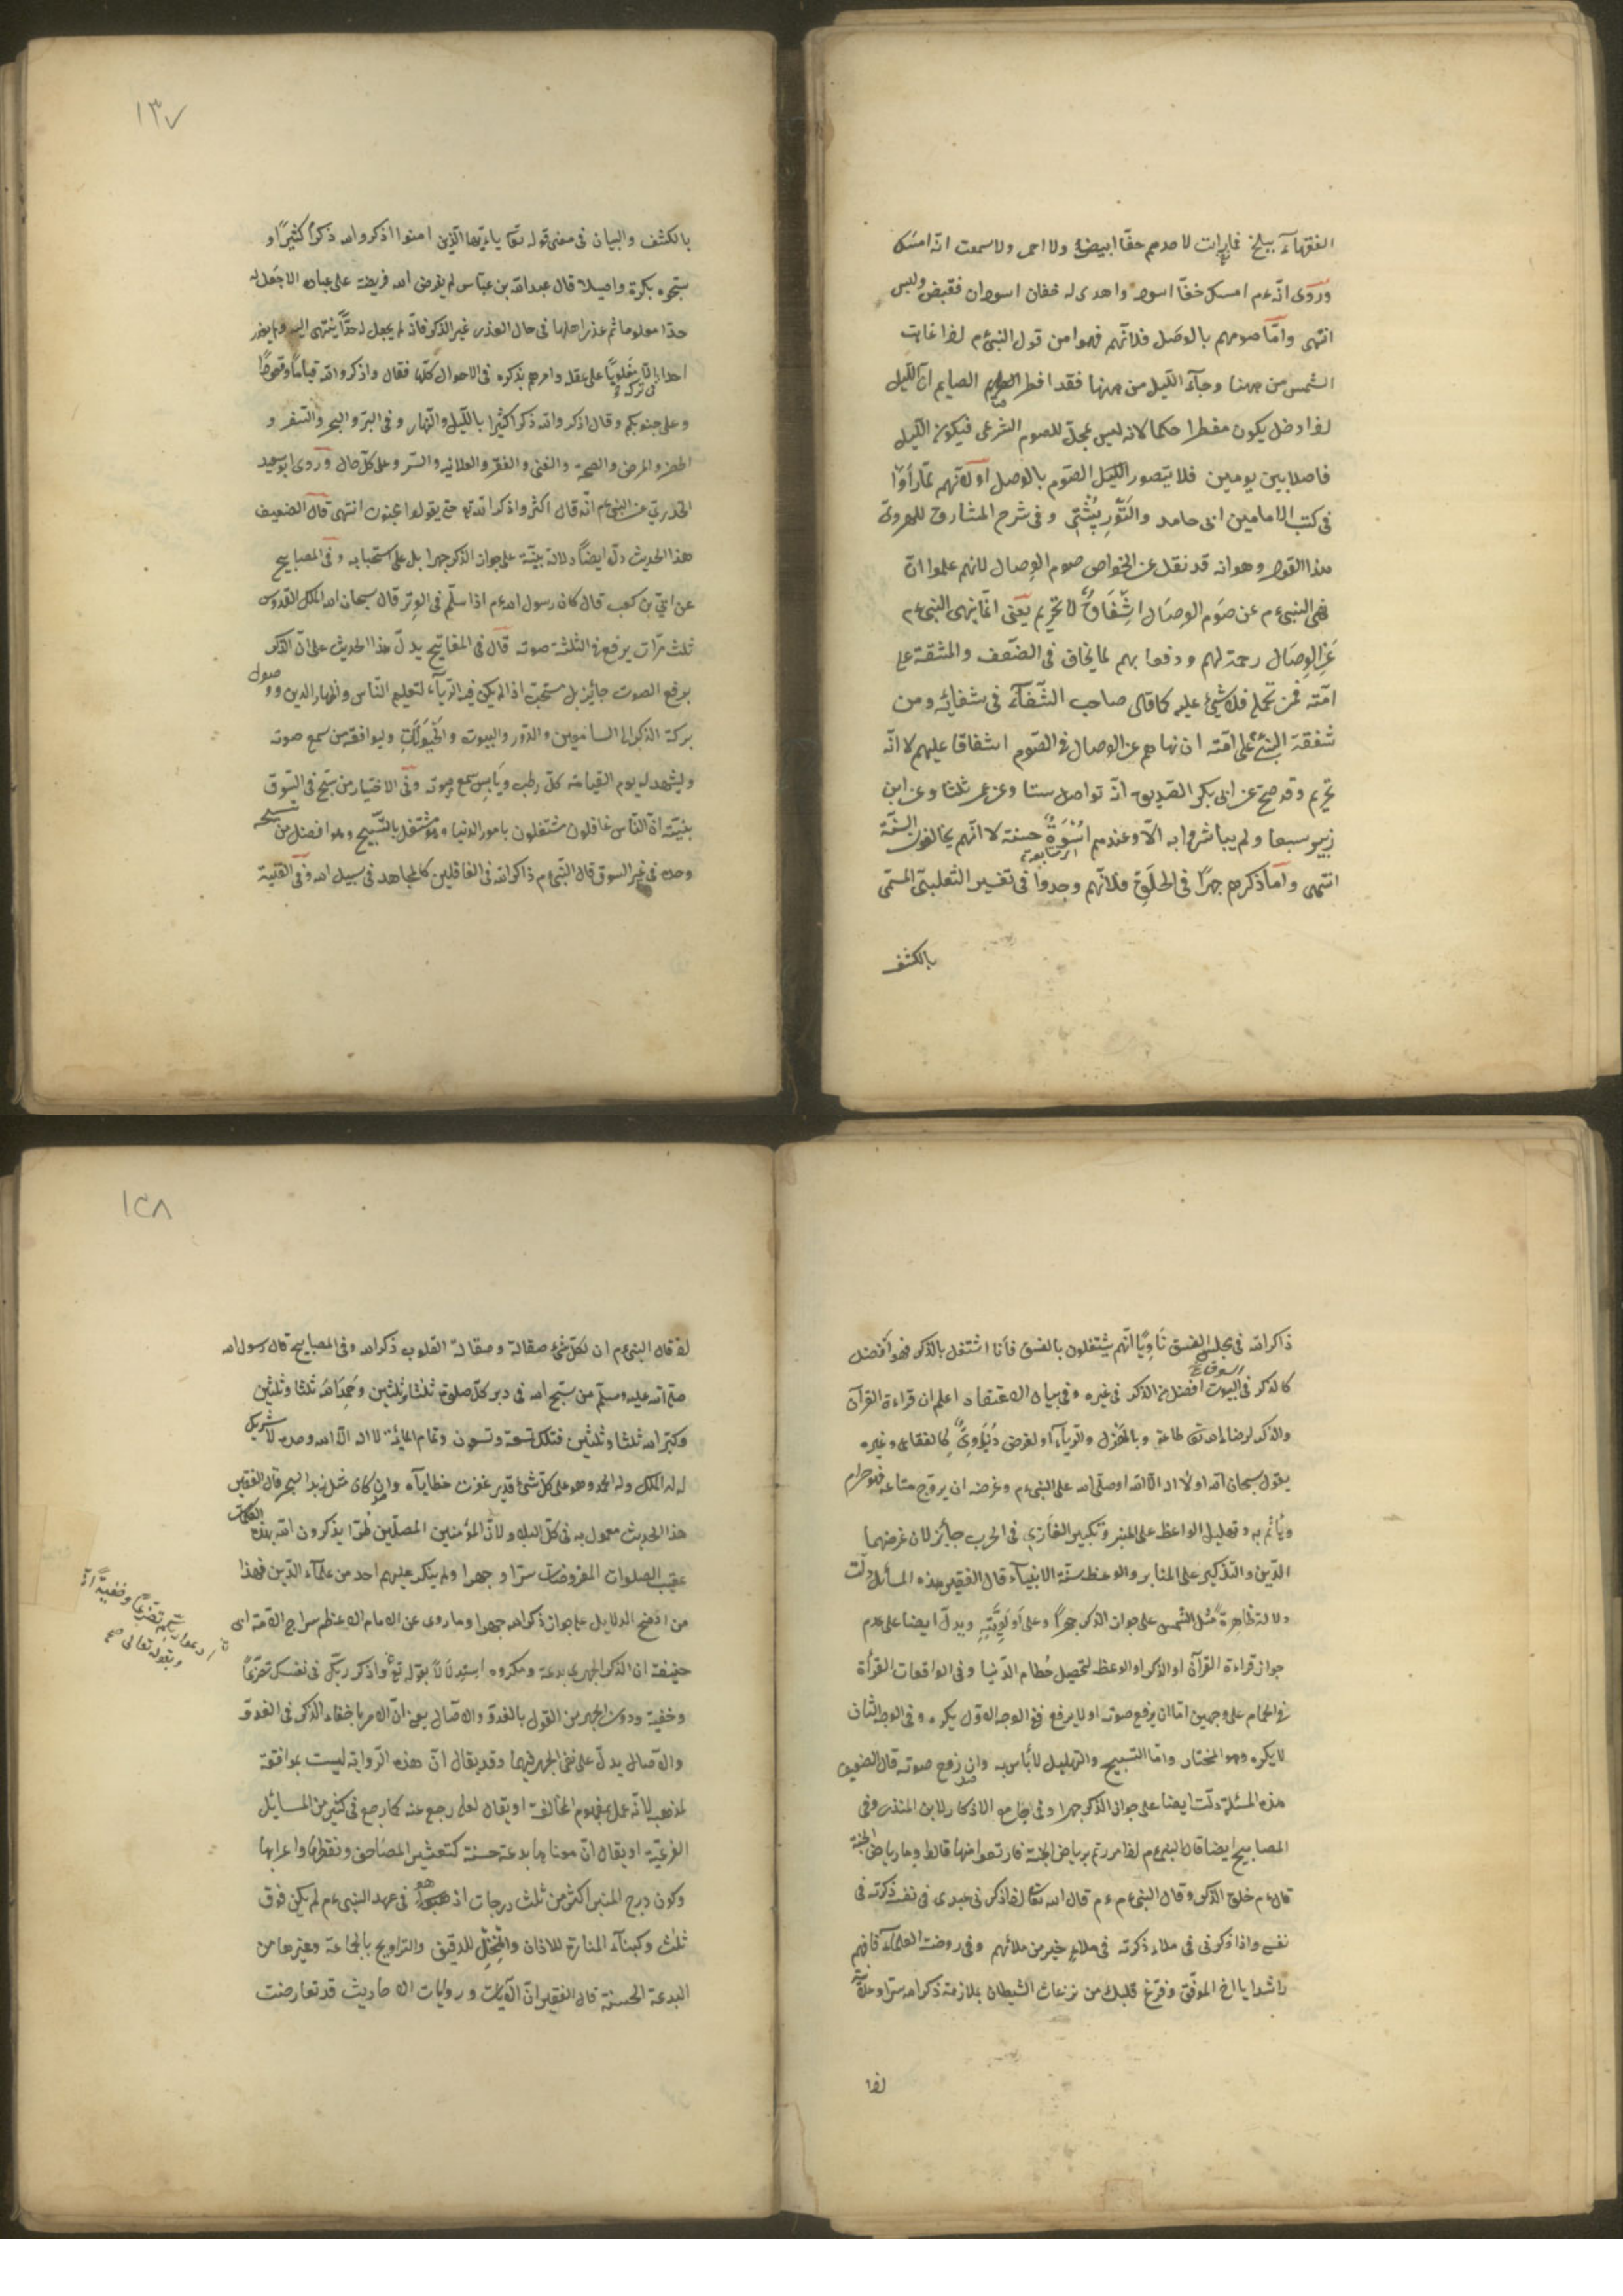 الفقهاء ببلخ فما رايت لاحدهم خفا ابيض ولا احمر ولا سمعت انه امسك
وروى انه ءم امسك خفا اسود واهدى له خفان اسودان فقبض ولبس
انتهى واما صومهم بالوصل فلانهم فهموا من قول النبي ءم اذا غابت
الشمس من ههنا وجاء الليل من ههنا فقد افطر الصايم ان الليل
اذا دخل يكون مفطرا حكما لانه ليس بمحل للصوم الشرعى فيكون الليل
فاصلا بين يومين فلا يتصور الصوم بالوصل او لانهم لما راوا
فى كتب الامامين ابى حامد والتوربشتى وفى شرح المشارق للهروى
هذا القول وهو انه قد نقل عن الخواص صوم الوصال لانهم علموا ان
نهى النبى ءم عن صوم الوصال اشفاق لا تحريم يعنى انما نهى النبى ءم
عن الوصال رحمة لهم ودفعا بهم لما يخاف فى الضعف والمشقة على
امته فمن تحمل فلا شئ عليه كما قال صاحب الشفاء فى شفائه ومن
شفقة النبى على امته ان نهاهم عن الوصال فى الصوم اشفاقا عليهم لا انه
تحريم وقد صح عن ابى بكر الصديق انه تواصل ستا وعن عمر ثلثا وعن ابن
زبير سبعا ولم يباشروا به الا وعندهم اسوة حسنة لا انهم يخالفون السنة
انتهى واما ذكرهم جهرا فى الحلق فلانهم وجدوا فى تفسير الثعلبى المسمى
بالكشف
١٣٧
بالكشف والبيان فى معنى قوله تعا يا ايها الذين امنوا اذكروا الله ذكرا كثيرا و
سبحوه بكرة واصيلا قال عبد الله بن عباس لم يفرض الله فريضة على عباده الا جعل له
حدا معلوما ثم عذر اهلها فى حال العذر غير الذكر فانه لم يجعل له حدا ينتهى اليه ولم يعذر
احدا فى تركه الا مغلوبا على عقله وامرهم بذكره فى الاحوال كلها فقال واذكروا الله قياما وقعودا
وعلى جنوبكم وقال اذكروا الله ذكرا كثيرا بالليل والنهار وفى البر والبحر والسفر و
الحضر والمرض والصحة والغنى والفقر والعلانيه والسر وعلى كل حال وروى ابو سعيد
الخدرى عن النبى ءم انه قال اكثروا ذكر الله تع حتى يقولوا مجنون انتهى قال الضعيف
هذا الحديث دل ايضا دلالة بينة على جواز الذكر جهرا بل على استحبابه وفى المصابيح
عن ابى بن كعب قال كان رسول الله ءم اذا سلم فى الوتر قال سبحان الله الملك القدوس
ثلث مرات يرفع فى الثلثة صوته قال فى المفاتيح يدل هذا الحديث على ان الذكر
برفع الصوت جائز بل مستحب اذا لم يكن فيه الرياء لتعليم الناس واظهار الدين ووصول
بركة الذكر الى السامعين والدور والبيوت والحيوانات وليوافقه من سمع صوته
وليشهد له يوم القيامة كل رطب ويابس سمع صوته وفى الاختيار من سبح فى السوق
بنية ان الناس غافلون مشتغلون بامور الدنيا وهو مشتغل بالتسبيح وهو افضل من تسبيحه
وحده فى غير السوق قال النبى ءم ذاكر الله فى الغافلين كالمجاهد فى سبيل الله وفى القنية
ذاكر الله فى مجلس الفسق ناويا انهم يشتغلون بالفسق فانا اشتغل بالذكر فهو افضل
كالذكر فى السوق افضل من الذكر فى غيره وفى بيان الاعتقاد اعلم ان قراءة القرآن
والذكر لرضاء الله تع طاعة وبالهزل والرياء او لغرض دنيوى كالفقاعى وغيره
يقول سبحان الله او لا اله الا الله او صلى الله على النبى ءم وغرضه ان يروج متاعه فهو حرام
وياثم به وتهليل الواعظ على المنبر وتكبير الغازى فى الحرب جايز لان غرضهما
الدين والتذكير على المنابر والوعظ سنة الانبياء قال الفقير هذه المسائل دلت
دلالة ظاهرة مثل الشمس على جواز الذكر جهرا وعلى اولويته ويدل ايضا على عدم
جواز قراءة القرآن او الذكر او الوعظ لتحصيل حطام الدنيا وفى الواقعات القرأة
فى الحمام على وجهين اما ان يرفع صوته او لا يرفع ففى الوجه الاول يكره وفى الوجه الثانى
لا يكره وهو المختار واما التسبيح والتهليل لا بأس به وان رفع صوته قال الضعيف
هذه المسئلة دلت ايضا على جواز الذكر جهرا وفى جامع الاذكار لابن المنذر وفى
المصابيح ايضا قال النبى ءم اذا مررتم برياض الجنة فارتعوا منها قالوا وما رياض الجنة
قال ءم حلق الذكر وقال النبى ءم قال الله تعا اذا ذكرنى عبدى فى نفسه ذكرته فى
نفسى واذا ذكرنى فى ملاء ذكرته فى ملاء خير من ملائهم وفى روضة العلماء فافهم
راشدا يا اخ الموفق وفرغ قلبك من نزغات الشيطان بملازمة ذكر الله سرا وعلانية
اذا
١٣٨
اذ قال النبى ءم ان لكل شئ صقالة وصقالة القلوب ذكر الله وفى المصابيح قال رسول الله
صلى الله عليه وسلم من سبح الله فى دبر كل صلوة ثلثا وثلثين وحمد الله ثلثا وثلثين
وكبر الله ثلثا وثلثين فتلك تسعة وتسعون وتمام المائة لا اله الا الله وحده لا شريك
له له الملك وله الحمد وهو على كل شئ قدير غفرت خطاياه وان كان مثل زبد البحر قال الفقير
هذا الحديث معمول به فى كل البلد ولان المؤمنين المصلين طرا يذكرون الله بهذه الكلمات
عقيب الصلوات المفروضات سرا وجهرا ولم ينكر عليهم احد من علماء الدين فهذا
من اوضح الدلايل على جواز ذكر الله جهرا وما روى عن الامام الاعظم سراج الامة ابى
حنيفة ان الذكر الجهرى بدعة ومكروه استدلالا بقوله تع واذكر ربك فى نفسك تضرعا
وخفية ودون الجهر من القول بالغدو والاصال يعنى ان الامر باخفاء الذكر فى الغدو
والاصال يدل على نفى الجهر فيهما وقد يقال ان هذه الرواية ليست بموافقة
لمذهبه لانه عمل بمفهوم المخالفة او يقال لعله رجع عنه كما رجع فى كثير من المسايل
الفرعية او يقال ان معناها بدعة حسنة كتعشير المصاحف ونقطها واعرابها
وكون درج المنبر اكثر من ثلث درجات اذ هو فى عهد النبى ءم لم يكن فوق
ثلث وكبناء المنارة للاذان والمنخل للدقيق والتراويح بالجماعة وغيرها من
البدعة الحسنة قال الفقير ان الايات وروايات الاحاديث قد تعارضت
وبقوله تعالى
ادعوا ربكم تضرعا وخفية